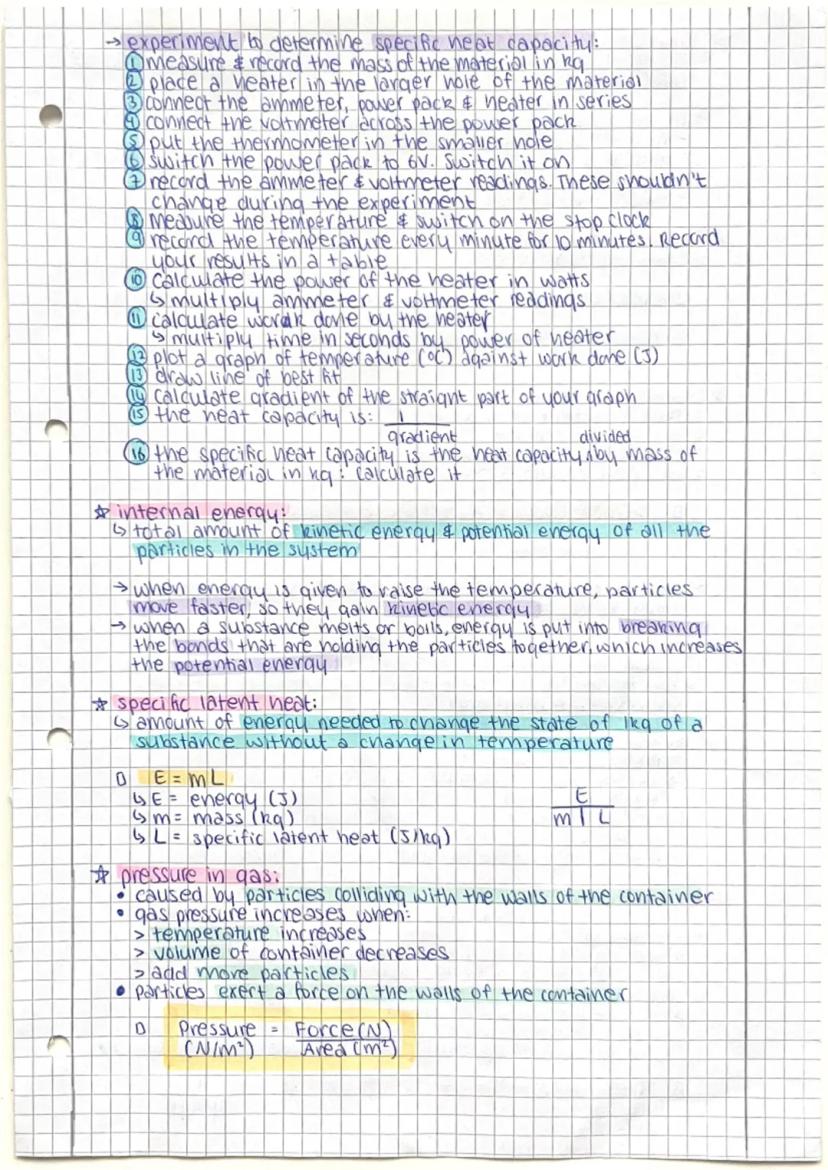 → experiment to determine specific heat capacity:
① measure & record the mass of the material in kg
② place a heater in the larger hole of the material
③ connect the ammeter, power pack & heater in series
④ connect the voltmeter across the power pack
⑤ put the thermometer in the smaller hole
⑥ switch the power pack to 6V. Switch it on
⑦ record the ammeter & voltmeter readings. These shouldn't
change during the experiment
⑧ Measure the temperature & switch on the stop clock
⑨ record the temperature every minute for 10 minutes. Record
your results in a table
⑩ calculate the power of the heater in watts
↳ multiply ammeter & voltmeter readings
⑪ calculate work done by the heater
↳ multiply time in seconds by power of heater
⑫ plot a graph of temperature (°C) against work done (J)
⑬ draw line of best fit
⑭ calculate gradient of the straight part of your graph
⑮ the heat capacity is: 1
gradient
divided
⑯ the specific heat capacity is the heat capacity ∧ by mass of
the material in kg: calculate it
☆ internal energy:
↳ total amount of kinetic energy & potential energy of all the
particles in the system
→ when energy is given to raise the temperature, particles
move faster, so they gain kinetic energy
→ when a substance melts or boils, energy is put into breaking
the bonds that are holding the particles together, which increases
the potential energy
☆ specific latent heat:
↳ amount of energy needed to change the state of 1kg of a
substance without a change in temperature
▯ E = mL
↳ E = energy (J)
↳ m = mass (kg)
↳ L = specific latent heat (J/kg)
E
m | L
☆ pressure in gas:
• caused by particles colliding with the walls of the container
• gas pressure increases when:
> temperature increases
> volume of container decreases
> add more particles
• particles exert a force on the walls of the container
▯ Pressure = Force (N)
(N/m²) Area (m²)